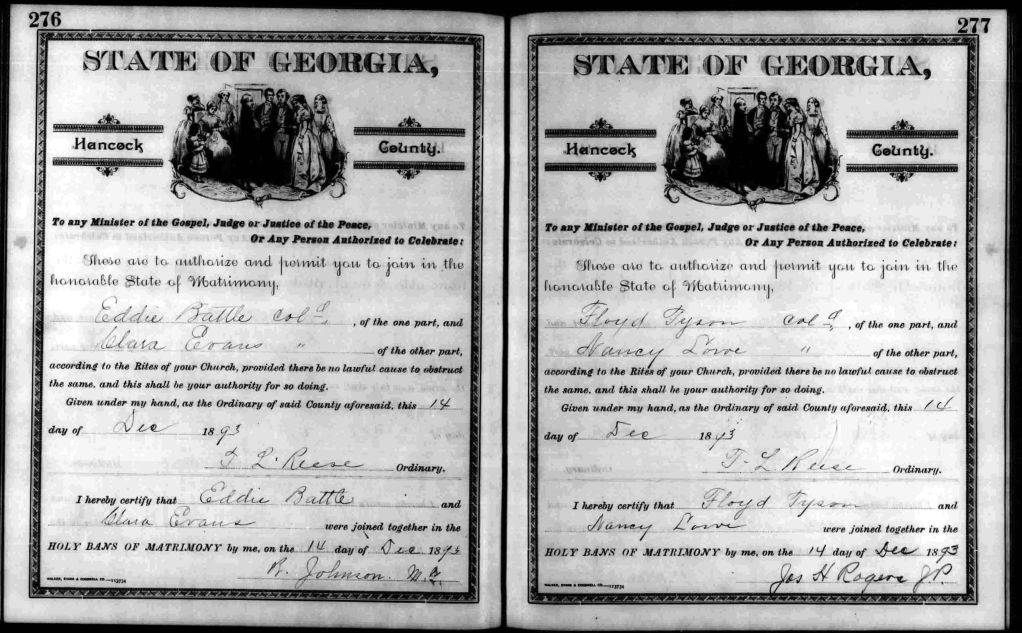 276
STATE OF GEORGIA,
Hancock County.
To any Minister of the Gospel, Judge or Justice of the Peace,
Or Any Person Authorized to Celebrate:
These are to authorize and permit you to join in the
honorable State of Matrimony,
Eddie Battle Col d, , of the one part, and
Clara Evans " of the other part,
according to the Rites of your Church, provided there be no lawful cause to obstruct
the same, and this shall be your authority for so doing.
Given under my hand, as the Ordinary of said County aforesaid, this 14
day of Dec 1893
T L Reese Ordinary.
I hereby certify that Eddie Battle and
Clara Evans were joined together in the
HOLY BANS OF MATRIMONY by me, on the 14 day of Dec 1893
R. Johnson. M.G.
WALKER, EVANS & COGSWELL CO.—113734
277
STATE OF GEORGIA,
Hancock County.
To any Minister of the Gospel, Judge or Justice of the Peace,
Or Any Person Authorized to Celebrate:
These are to authorize and permit you to join in the
honorable State of Matrimony,
Floyd Tyson Col d, , of the one part, and
Nancy Lowe " of the other part,
according to the Rites of your Church, provided there be no lawful cause to obstruct
the same, and this shall be your authority for so doing.
Given under my hand, as the Ordinary of said County aforesaid, this 14
day of Dec 1893
T- L Reese Ordinary.
I hereby certify that Floyd Tyson and
Nancy Lowe were joined together in the
HOLY BANS OF MATRIMONY by me, on the 14 day of Dec 1893
Jas H Rogers J.P.
WALKER, EVANS & COGSWELL CO.—113734